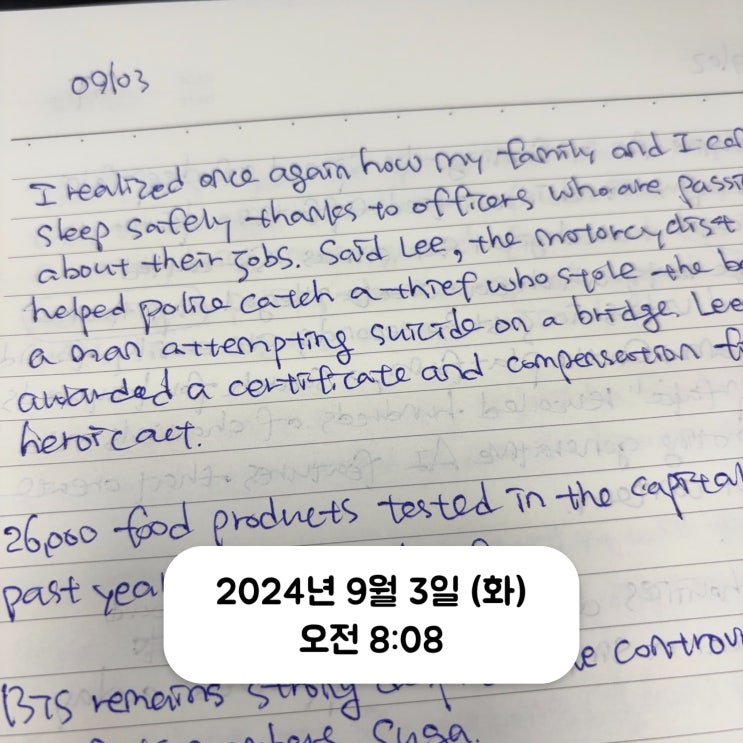 09/03
I realized once again how my family and I
sleep safely thanks to officers who are
about their jobs. Said Lee, the motorcyclist
helped police catch a thief who stole the
a man attempting suicide on a bridge. Lee
awarded a certificate and compensation
heroic act.
26,000 food products tested in the capital
past
2024년 9월 3일 (화)
오전 8:08
BTS remains strong
Suga.